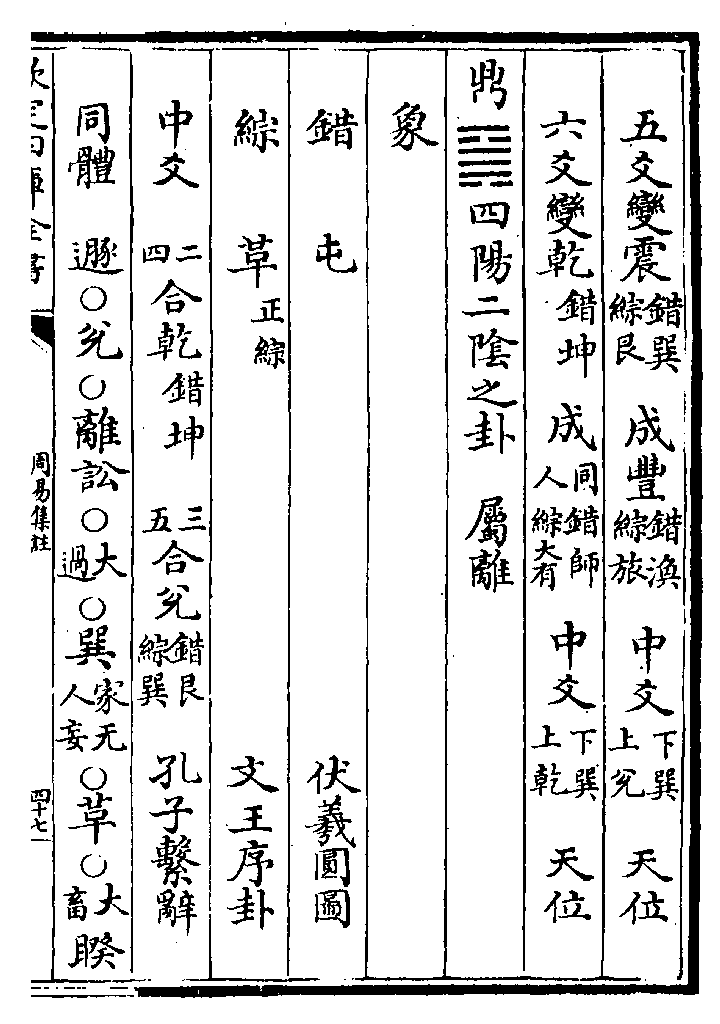 五爻變震錯巽綜艮 成豐錯渙綜旅 中爻下巽上兌 天位
六爻變乾錯坤 成同人錯師綜大有 中爻下巽上乾 天位
鼎䷱四陽二陰之卦 屬離
象
錯 屯 伏羲圓圖
綜 革正綜 文王序卦
中爻 二四合乾錯坤 三五合兌錯艮綜巽 孔子繫辭
同體 遯○兌○離訟○大過○巽家人无妄○革○大畜睽
欽定四庫全書 周易集註 四十七